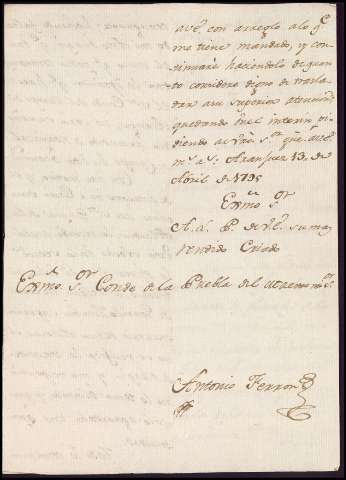 avẽ. con arreglo a lo q.^e
me tiene mandado, y con
tinuaré haciendolo de quan
to considere digno de trasla
dar a su superior atencion
quedando en el interin pi
diendo a Dios
m.^s a.^s Aranjuez 13. de
Abril de 1795
Exmo. S.^or
A. L. P. de V.E. su mas
rendido Criado
Exmo. S.^or Conde de la Puebla del
Antonio Ferron